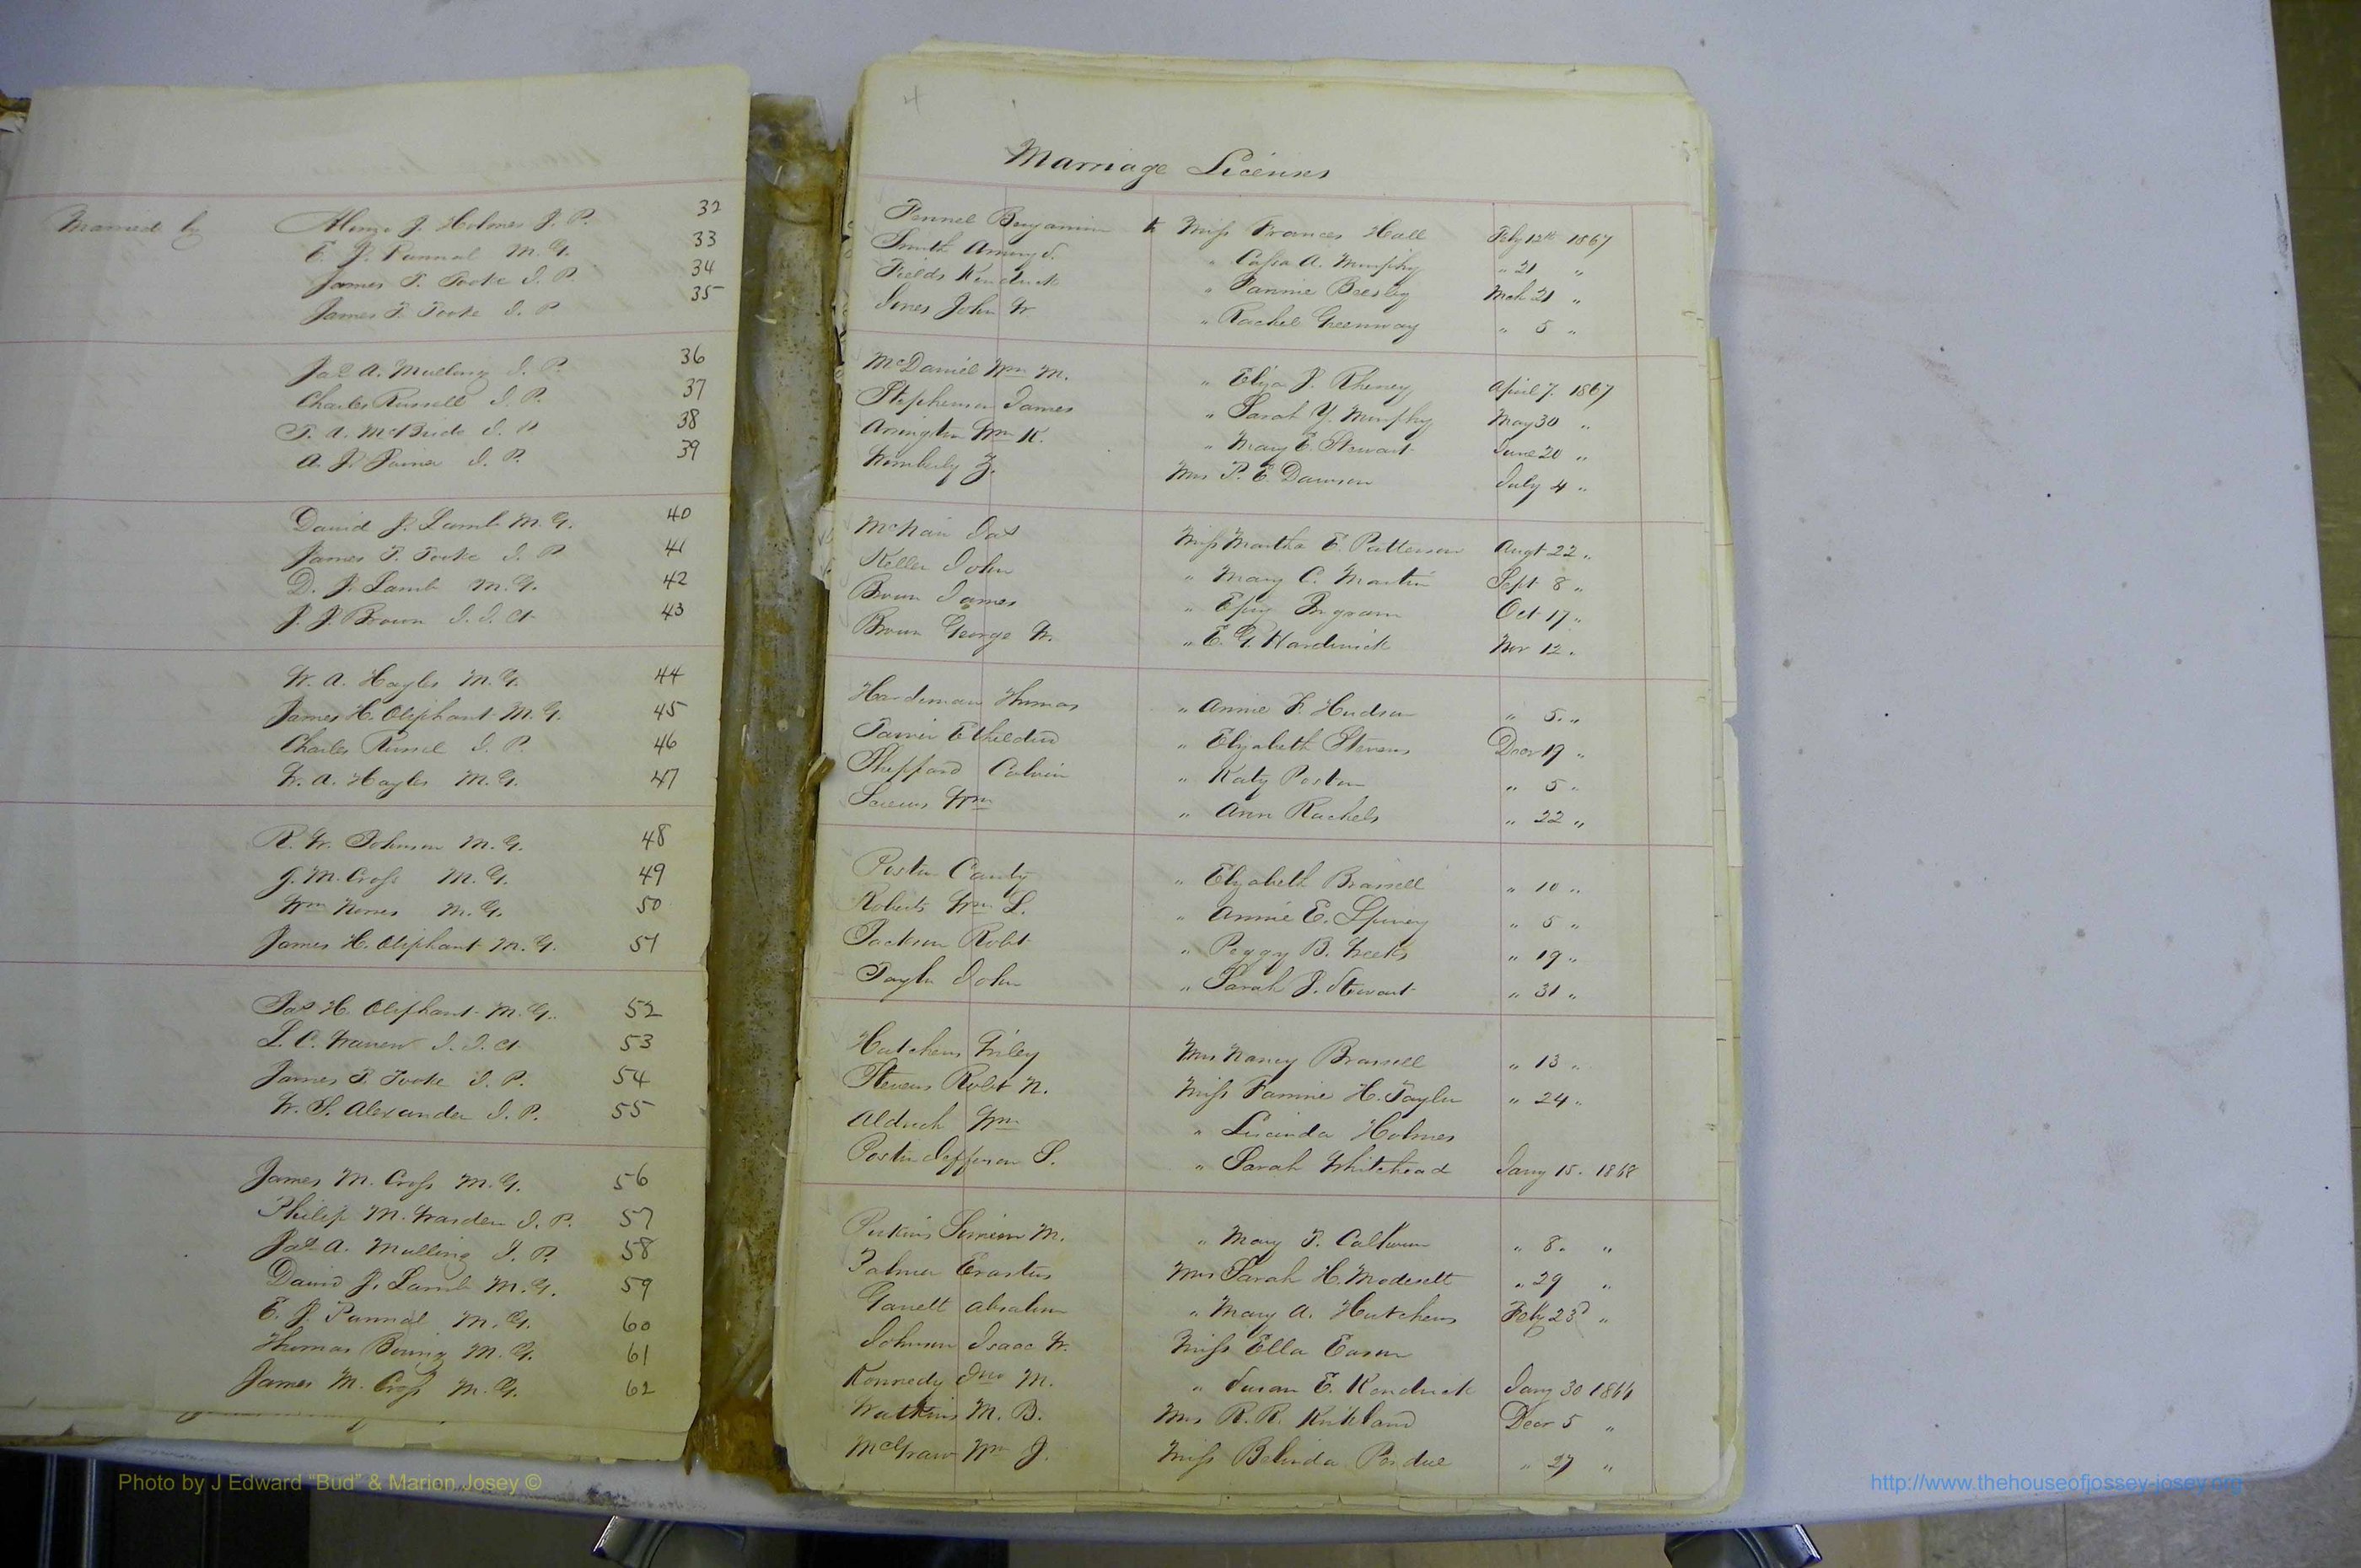 Married by Alonzo J. Holmes J. P. 32
E. J. Pannal M. G. 33
James T. Tooke J. P. 34
James T. Tooke J. P. 35
Jas A. Mulling J. P. 36
Charles Russell J. P. 37
T. A. McBride J. P. 38
A. J. J. P. 39
David J. Lamb M. G. 40
James T. Tooke J. P. 41
D. J. Lamb M. G. 42
J. J. Brown J. I. Ct 43
W. A. Hayles M. G. 44
James H. Oliphant M. G. 45
Charles Russel J. P. 46
W. A. Hayles M. G. 47
R. W. Johnson M. G. 48
J. M. Cross M. G. 49
Wm M. G. 50
James H. Oliphant M. G. 51
Jas H. Oliphant M. G. 52
L. C. Warren J. I. Ct 53
James T. Tooke J. P. 54
W. S. Alexander J. P. 55
James M. Cross M. G. 56
Philip M. Warden J. P. 57
Jas A. Mulling J. P. 58
David J. Lamb M. G. 59
E. J. Pannal M. G. 60
Thomas M. G. 61
James M. Cross M. G. 62
4
Marriage Licenses
Pennel Benjamin to Miss Frances Hall Feby 12th 1867
Smith " Cassa A. Murphy " 21 "
Fields Kendrick " Fannie Beesley Mch 21 "
Jones John W " Rachel Greenway " 5 "
McDaniel Wm M. " Eliza J. Rheney April 7. 1867
Stephenson James " Sarah Y. Murphy May 30 "
Arington Wm K. " Mary E. Stewart June 20 "
Wimberly Z. Mrs P. E. Dawson July 4 "
McNair Jas Miss Martha E. Patterson Augt 22 "
Keller John " Mary C. Martin Sept 8 "
Brown James " Ingram Oct 17 "
Brown George W. " E. G. Hardwick Nov 12 "
Hardeman Thomas " Annie F. Hudson " 5. "
" Elizabeth Stevens Decr 19 "
Sheppard Calvin " Katy Poston " 5 "
Wm " Ann Rachels " 22 "
Poston Canty " Elizabeth Brassell " 10 "
Roberts Wm L. " Annie E. Spivey " 5 "
Jackson Robt " Peggy B. Weeks " 19 "
Taylor John " Sarah J. Stewart " 31 "
Hutchens Wiley Mrs Nancy Brassell " 13 "
Stevens Robt N. Miss Fannie H. Taylor " 24 "
Aldrich Wm " Lucinda Holmes
Poston Jefferson S. " Sarah Whitehead Jany 15. 1868
Perkins Simeon M. " Mary T. Calhoun " 8. "
Palmer Erastus Mrs Sarah H. Modesett " 29 "
Garrett Absalom " Mary A. Hutchens Feby 23d "
Johnson Isaac W. Miss Ella Eason
Kennedy Jno M. " Susan E. Kendrick Jany 30 1866
Watkins M. B. Mrs R. R. Kirkland Decr 5 "
McGraw Wm J. Miss Belinda Perdue " 27 "
Photo by J Edward “Bud” & Marion Josey ©
http://www.thehouseofjossey-josey.org